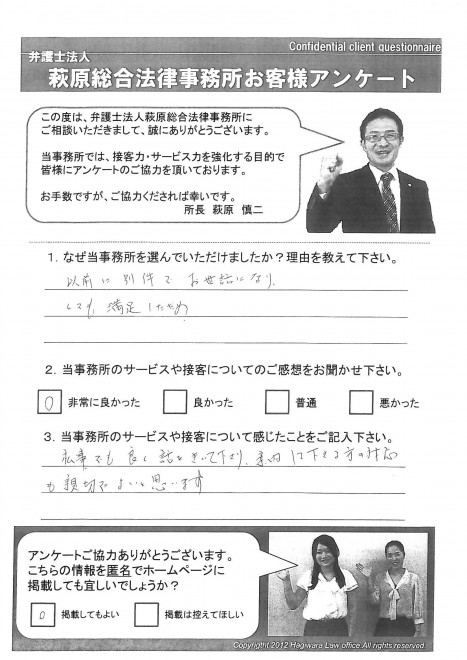 Confidential client questionnaire
弁護士法人
萩原総合法律事務所お客様アンケート
この度は、弁護士法人萩原総合法律事務所に
ご相談いただきまして、誠にありがとうございます。
当事務所では、接客力・サービス力を強化する目的で
皆様にアンケートのご協力を頂いております。
お手数ですが、ご協力くだされば幸いです。
所長 萩原 慎二
1. なぜ当事務所を選んでいただけましたか?理由を教えて下さい。
以前に別件でお世話になり、
とても満足したため
2. 当事務所のサービスや接客についてのご感想をお聞かせ下さい。
0 非常に良かった 良かった 普通 悪かった
3. 当事務所のサービスや接客について感じたことをご記入下さい。
私事でも良く話をきいて下さり、案内して下さる方の対応
も親切でよいと思います
アンケートご協力ありがとうございます。
こちらの情報を匿名でホームページに
掲載しても宜しいでしょうか?
0 掲載してもよい 掲載は控えてほしい
Copyright 2012 Hagiwara Law office All rights reserved